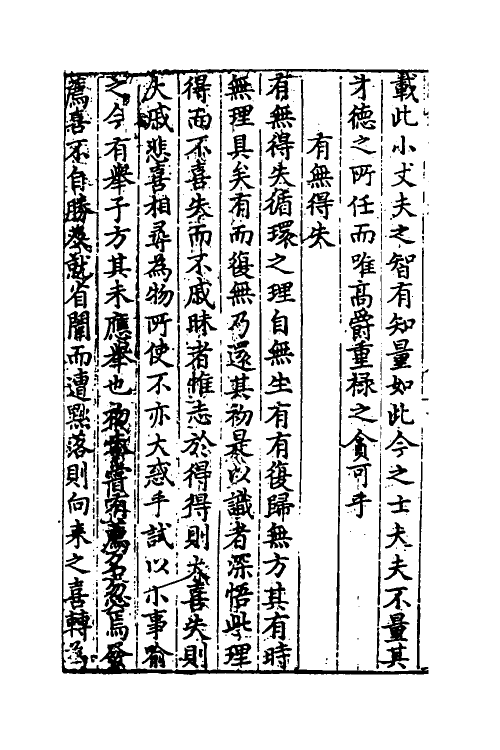 載此小丈夫之智有知量如此今之士夫夫不量其
才德之所任而唯高爵重祿之貪可乎
有無得失
有無得失循環之理自無生有有復歸無方其有時
無理具矣有而復無乃還其初是以識者深悟此理
得而不喜失而不戚昧者惟志於得得則大喜失則
大戚悲喜相尋為物所使不亦大惑乎試以小事喻
之今有舉子方其未應舉也初實嘗有薦名忽焉發
薦喜不自勝及就省闈而遭黜落則向來之喜轉為